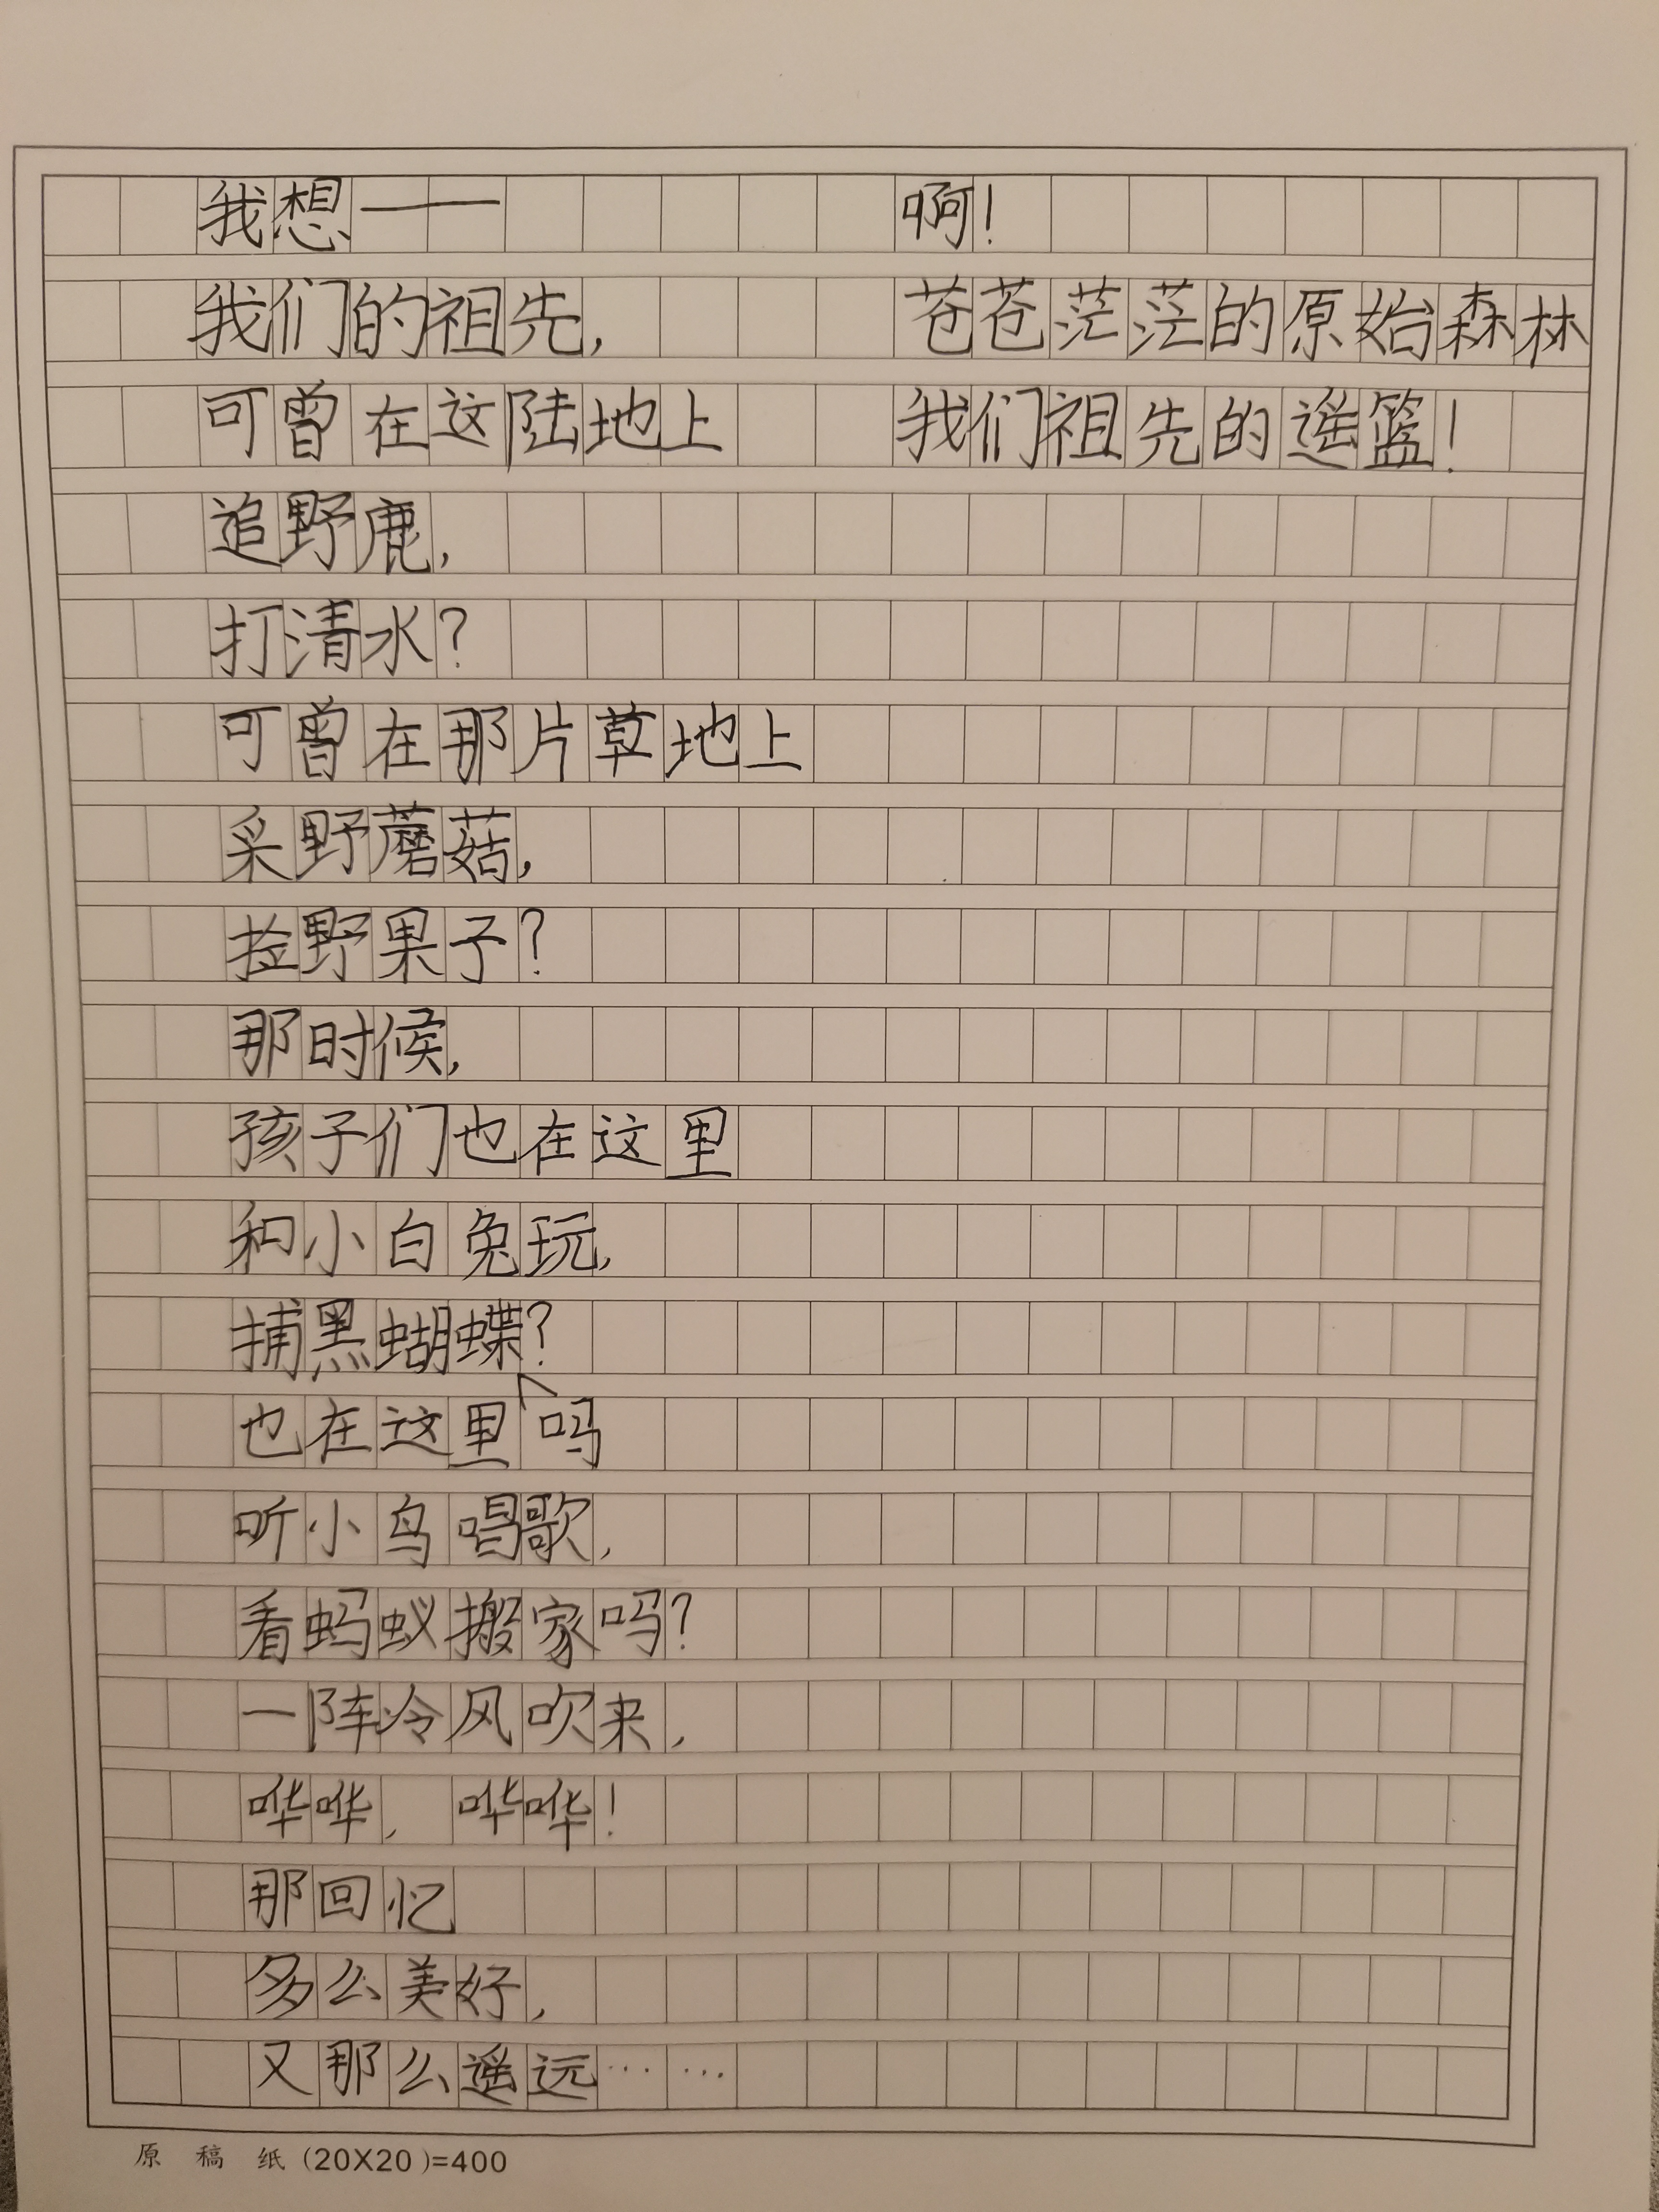 我想——
我们的祖先,
可曾在这陆地上
追野鹿,
打清水?
可曾在那片草地上
采野蘑菇,
捡野果子?
那时候,
孩子们也在这里
和小白兔玩,
捕黑蝴蝶?
也在这里吗
听小鸟唱歌,
看蚂蚁搬家吗?
一阵冷风吹来,
哗哗,哗哗!
那回忆
多么美好,
又那么遥远……
啊!
苍苍茫茫的原始森林
我们祖先的遥篮!
原稿纸(20X20)=400